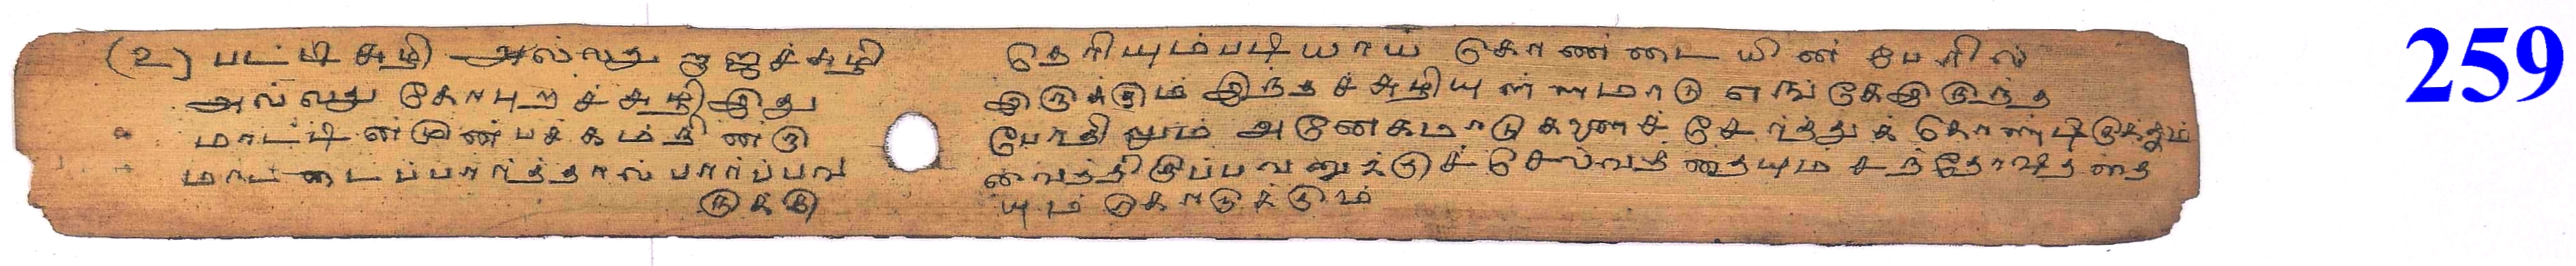 (2) பட்டி சுழி அல்லது றாஜச்சுழி
அல்லது கோபுறச்சுழி இது
மாட்டின் முன்பக்கம் நின்று
மாட்டைப்பார்த்தால் பார்ப்பவ
ருக்கு
தெரியும்படியாய் கொண்டையின் பேரில்
இருக்கும் இந்தச்சுழியுள்ளமாடு எங்கேஇருந்த
போதிலும் அனேகமாடுகளைச் சேர்த்துக் கொண்டிருக்கும்
வைத்திருப்பவனுக்குச் செல்வத்தையும் சந்தோஷத்தை
யும் கொடுக்கும்
259